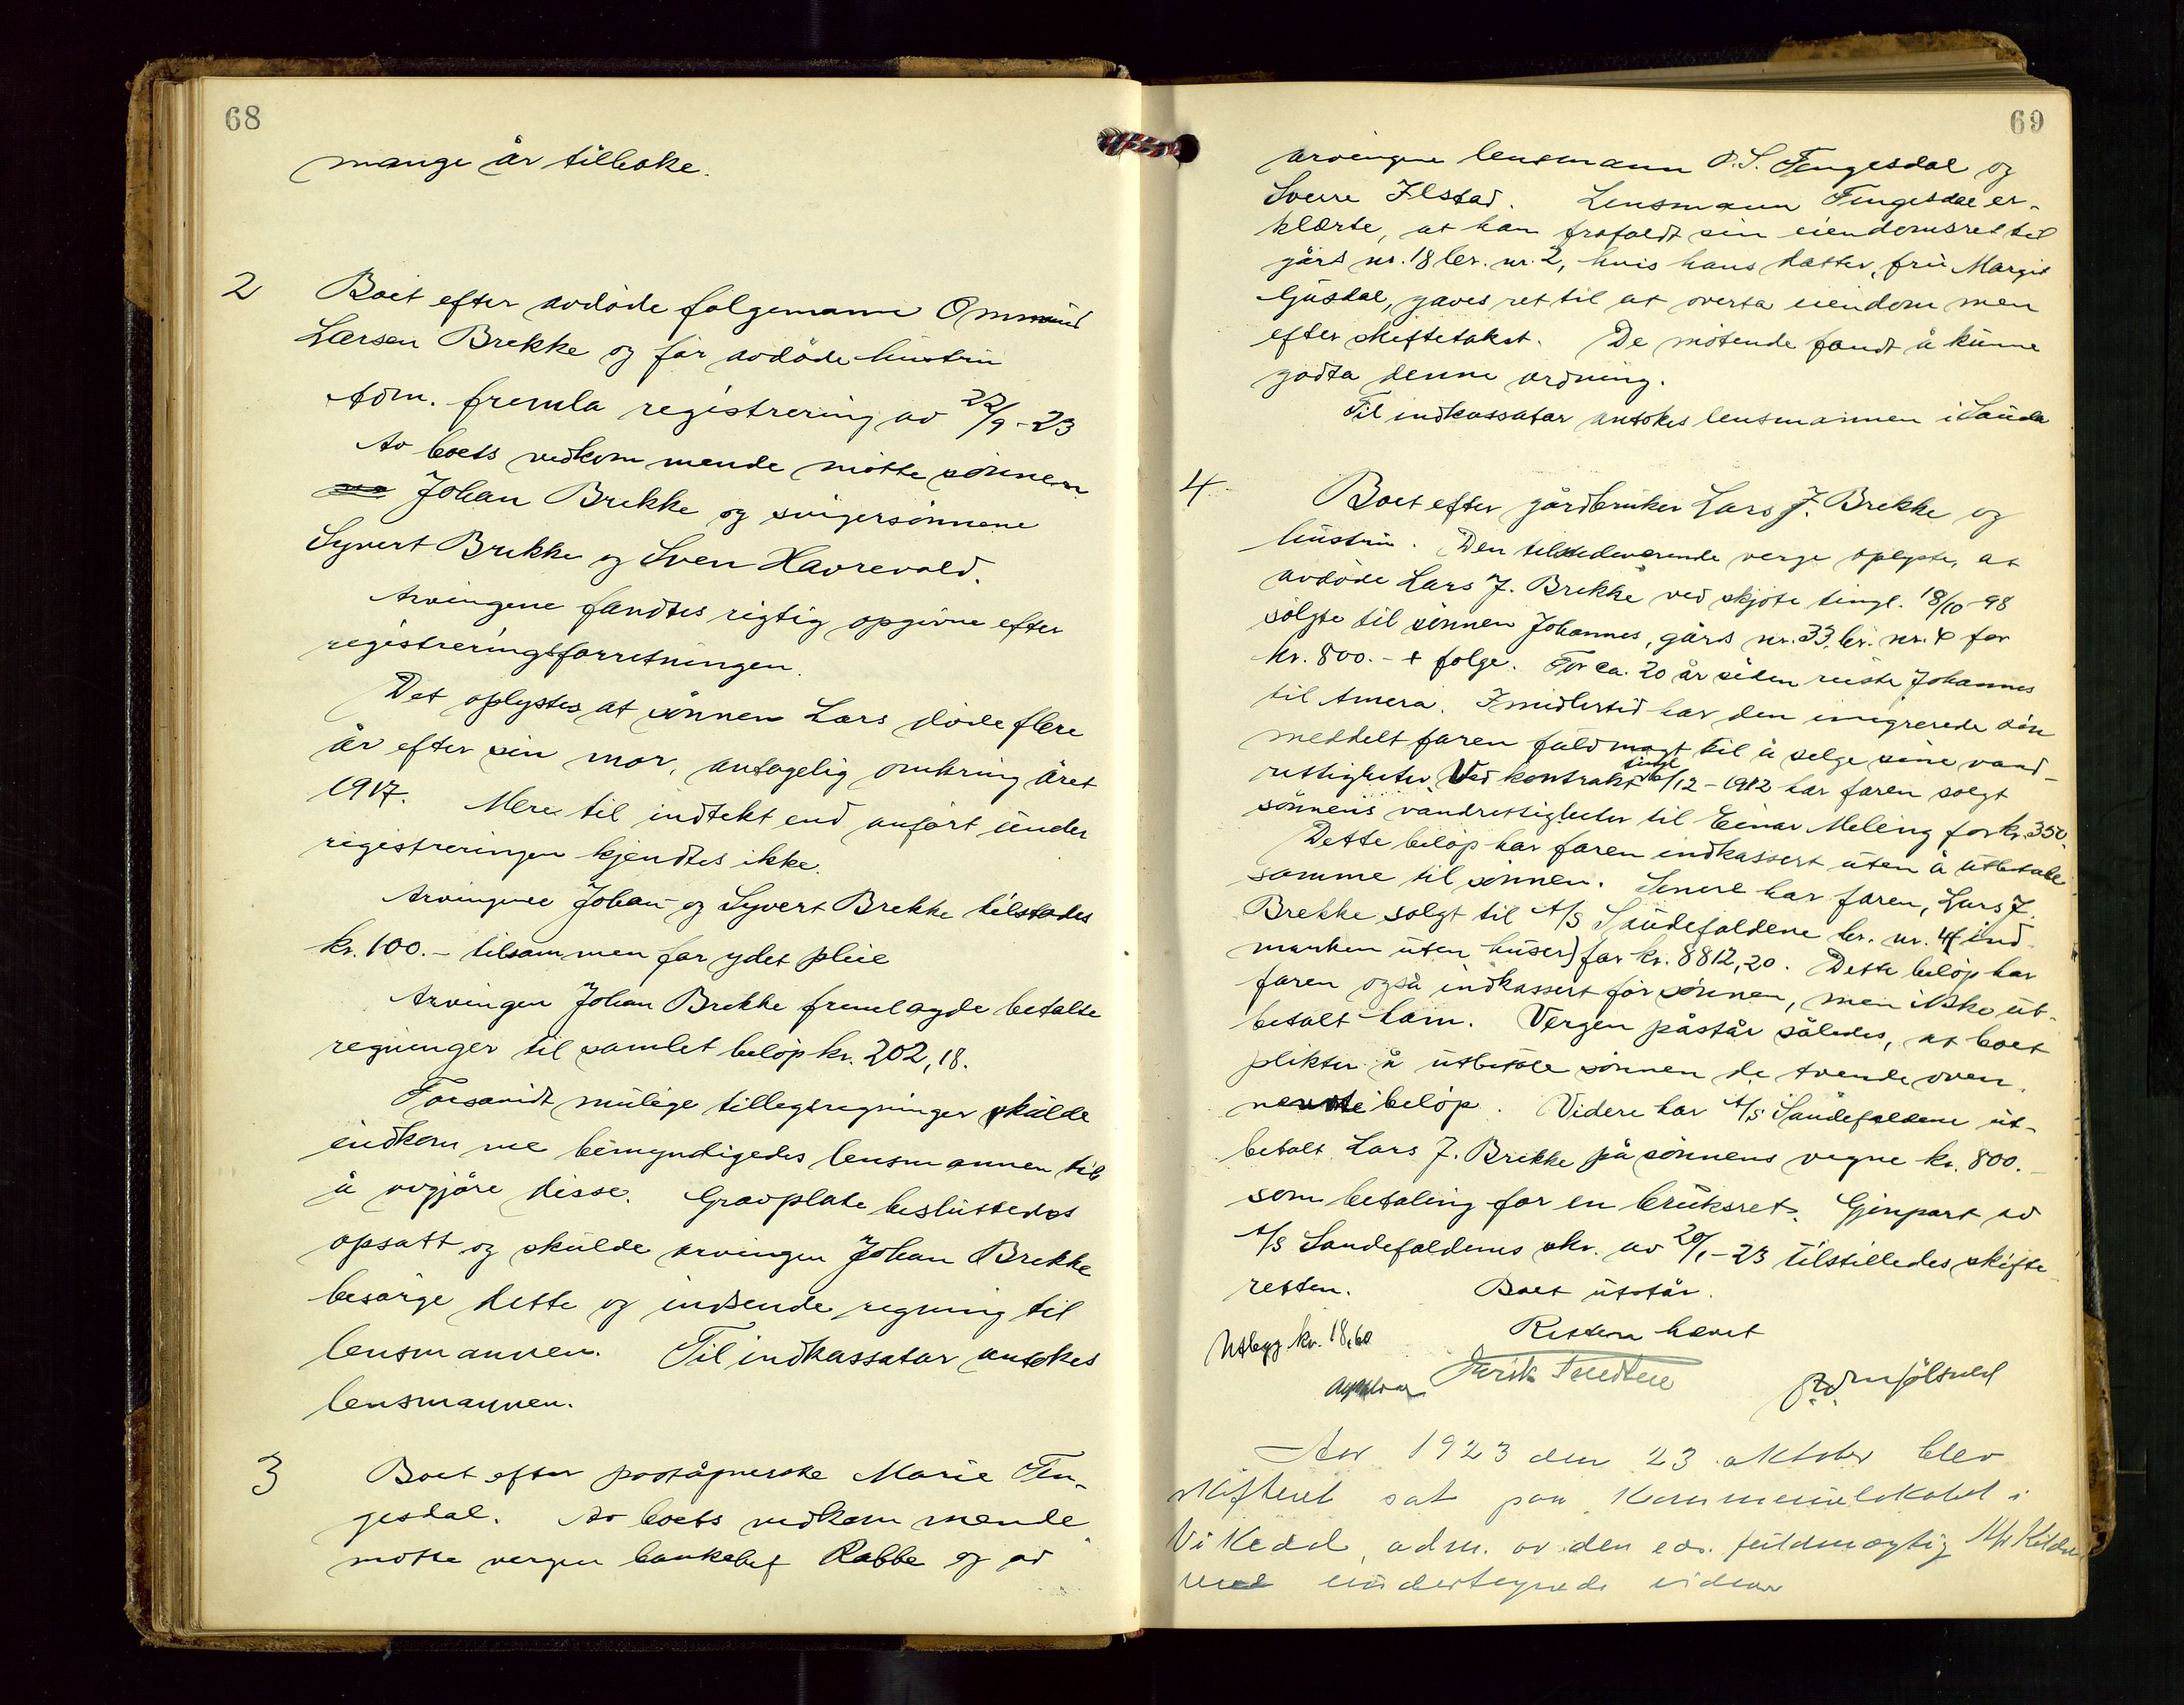 68
mange år tilbake.
2 Boet efter avdöde følgemann Ommund
Larsen Brekke og før avdöde hustru
Adm. fremla registrering av 22/9-23
Av boets vedkommende mötte sönnen
Johan Brekke og svigersönnene
Syvert Brekke og Sven Havrevold.
Arvingene fandtes rigtig opgivne efter
registreringsforretningen.
Det oplystes at sönnen Lars döde flere
år efter sin mor, antagelig omkring året
1917. Mere til indtekt end anfört under
registreringen kjendtes ikke.
Arvingene Johan og Syvert Brekke tilstodes
kr. 100.- tilsammen for ydet pleie
Arvingen Johan Brekke fremlagde betalte
regninger til samlet belöp kr. 202,18.
Forsavidt mulige tillegsregninger skulde
indkomme bemyndigedes lensmannen til
å avgjöre disse. Gravplate besluttedes
opsatt og skulde arvingen Johan Brekke
besörge dette og indsende regning til
lensmannen. Til indkassator antokes
lensmannen.
3 Boet efter poståpnerske Marie Fen-
gesdal. Av boets vedkommende
mötte vergen bankchef Rabbe og av
69
arvingene lensmann O.S. Fengesdal og
Sverre Ilstad. Lensmann Fengesdal er-
klærte, at han frafaldt sin eiendomsret til
gårds nr. 18 br. nr. 2, hvis hans datter, fru Margit
Gusdal, gaves ret til at overta eiendommen
efter skiftetakst. De mötende fandt å kunne
godta denne ordning.
Til indkassator antokes lensmannen i Sauda
4 Boet efter gårdbruker Lars J. Brekke og
hustru. Den tilstedeværende verge oplyste, at
avdöde Lars J. Brekke ved skjöte tingl. 18/10-98
solgte til sönnen Johannes, gårds nr. 33, br. nr. 4 for
kr. 800.- + følge. For ca. 20 år siden reiste Johannes
til Amera. Imidlertid har den emigrerede sön
meddelt faren fuldmagt til å selge sine vand-
rettigheter. Ved kontrakt tingl. 6/12-1912 har faren solgt
sönnens vandrettigheter til Einar Meling for kr. 350.
Dette belöp har faren indkassert uten å utbetale
samme til sönnen. Senere har faren, Lars J.
Brekke solgt til A/S Saudefaldene br. nr. 4 (ind-
marken uten huser) for kr. 8812,20. Dette belöp har
faren også indkassert for sönnen, men ikke ut-
betalt ham. Vergen påstår således, at boet
plikter å utbetale sönnen de tvende oven-
nevnte belöp. Videre har A/S Saudefaldene ut-
betalt Lars J. Brekke på sönnens vegne kr. 800.-
som betaling for en bruksret. Gjenpart av
A/S Saudefaldenes skr. av 20/1-23 tilstilledes skifte-
retten. Boet utstår.
Utlegg kr. 18,60 Retten hevet
Aar 1923 den 23 oktober blev
skifteret sat paa Kommunelokalet i
Vikedal, adm. av den eds. fuldmægtig
med undertegnede vidner